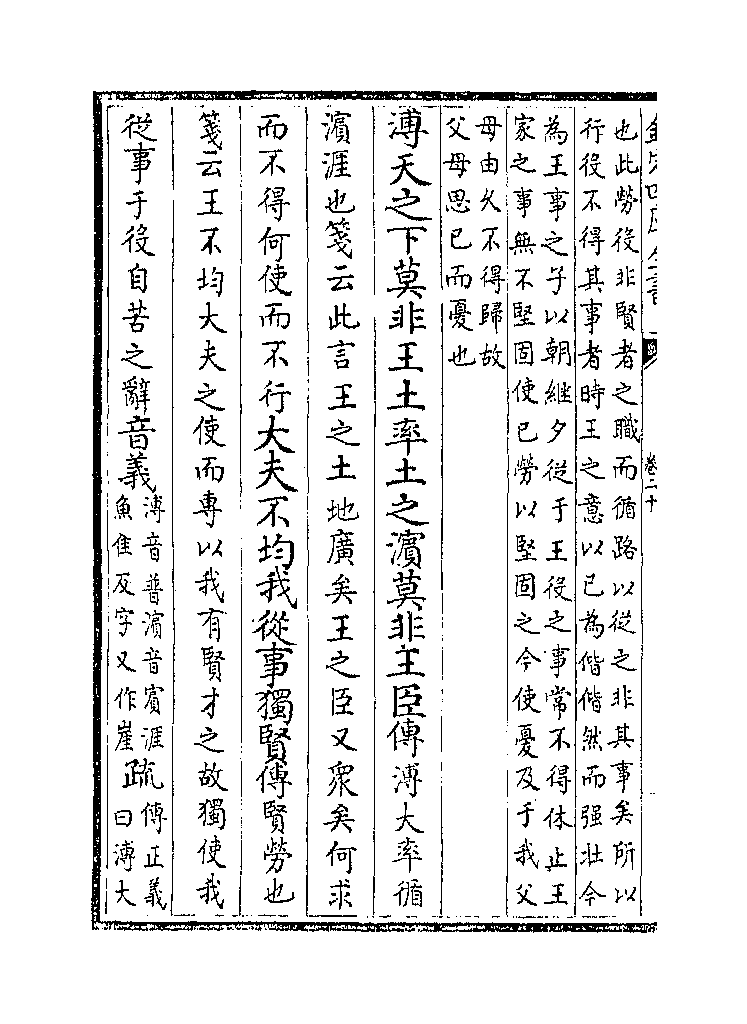 欽定四庫全書
卷二十
也此勞役非賢者之職而循路以從之非其事矣所以
行役不得其事者時王之意以已為偕偕然而强壯今
為王事之子以朝繼夕從于王役之事常不得休止王
家之事無不堅固使已勞以堅固之今使憂及于我父
母由久不得歸故
父母思已而憂也
溥天之下莫非王土率土之濵莫非王臣傳溥大率循
濵涯也箋云此言王之土地廣矣王之臣又衆矣何求
而不得何使而不行大夫不均我從事獨賢傳賢勞也
箋云王不均大夫之使而專以我有賢才之故獨使我
從事于役自苦之辭音義
溥音普濵音賓涯
魚隹反字又作崖
疏
傳正義
曰溥大